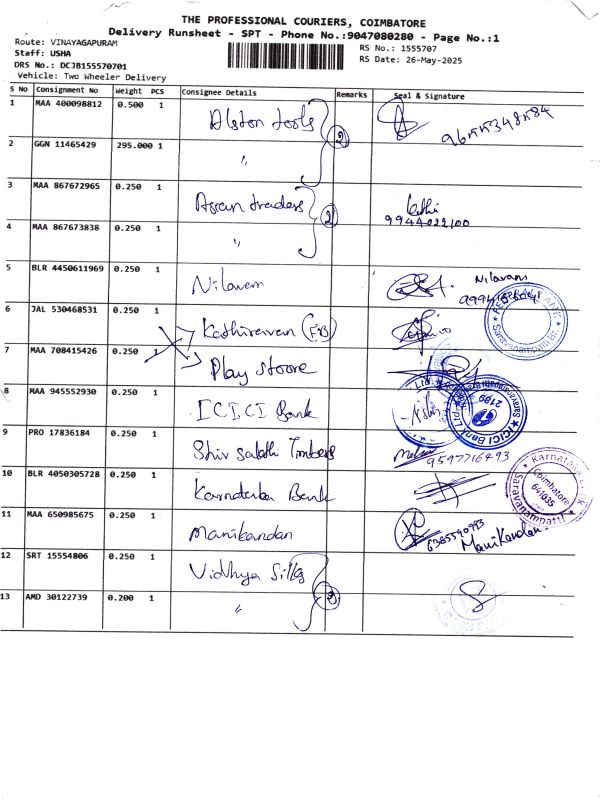 THE PROFESSIONAL COURIERS, COIMBATORE
Delivery Runsheet - SPT - Phone No.:9047080280 - Page No.:1
Route: VINAYAGAPURAM
Staff: USHA
RS No.: 1555707
DRS No.: DCJB155570701
RS Date: 26-May-2025
Vehicle: Two Wheeler Delivery
S NO Consignment No Weight PCS Consignee Details Remarks Seal & Signature
1 MAA 400098812 0.500 1 Alston tools 2
2 GGN 11465429 295.000 1 "
3 MAA 867672965 0.250 1 Asian traders 2
9944022100
4 MAA 867673838 0.250 1 "
5 BLR 4450611969 0.250 1 Nilavan
6 JAL 530468531 0.250 1 Kathiravan
7 MAA 708415426 0.250 1 Play stoore
8 MAA 945552930 0.250 1 ICICI Bank ICICI Bank Ltd. 2199
9 PRO 17836184 0.250 1 Shiv sakthi Timbers 9597716493
10 BLR 4050305728 0.250 1 Karnataka Bank Coimbatore 641035 Saravanampatti
11 MAA 650985675 0.250 1 Manikandan
6385590993
Manikandan
12 SRT 15554806 0.250 1 Vidhya Silks
13 AMD 30122739 0.200 1 "